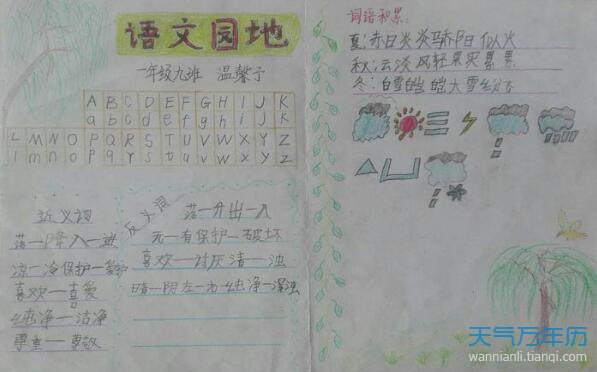 语文园地
一年级九班 温馨子
A B C D E F G H I J K
a b c d e f g h i j k
L M N O P Q R S T U V W X Y Z
l m n o p q r s t u v w x y z
近义词
落一降 入一进
凉一冷 保护一爱护
喜欢一喜爱
纯净一洁净
尊重一尊敬
反义词
落一升 出一入
无一有 保护一破坏
喜欢一讨厌 清一浊
晴一阴 左一右 纯净一浑浊
词语积累:
夏:赤日炎炎 骄阳似火
秋:云淡风轻 果实累累
冬:白雪皑皑 大雪纷纷
天气万年历
wannianli.tianqi.com